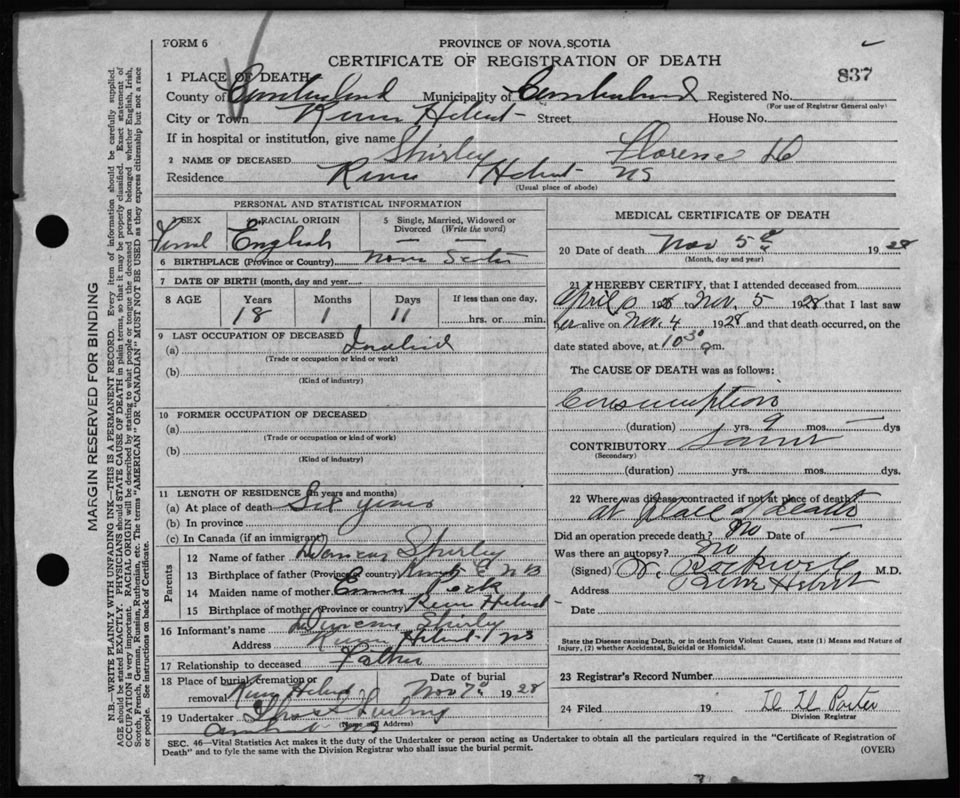 FORM 6
PROVINCE OF NOVA SCOTIA
CERTIFICATE OF REGISTRATION OF DEATH
837
1 PLACE OF DEATH
County of Cumberland Municipality of Cumberland Registered No.
(For use of Registrar General only)
City or Town River Hebert Street House No.
If in hospital or institution, give name
2 NAME OF DECEASED Shirley Florence
Residence River Hebert NS
(Usual place of abode)
PERSONAL AND STATISTICAL INFORMATION
3 SEX
4 RACIAL ORIGIN
5 Single, Married, Widowed or Divorced (Write the word)
English
6 BIRTHPLACE (Province or Country) Nova Scotia
7 DATE OF BIRTH (month, day and year)
8 AGE Years Months Days If less than one day,
18 1 11 hrs. or min.
9 LAST OCCUPATION OF DECEASED
(a) Invalid
(Trade or occupation or kind or work)
(b)
(Kind of industry)
10 FORMER OCCUPATION OF DECEASED
(a)
(Trade or occupation or kind of work)
(b)
(Kind of industry)
11 LENGTH OF RESIDENCE (in years and months)
(a) At place of death Six years
(b) In province
(c) In Canada (if an immigrant)
Parents
12 Name of father Shirley
13 Birthplace of father (Province or country) NB
14 Maiden name of mother Emma
15 Birthplace of mother (Province or country) River Hebert
16 Informant's name Shirley
Address River Hebert NS
17 Relationship to deceased Father
18 Place of burial, cremation or removal River Hebert
Date of burial Nov 7 1928
19 Undertaker
(Name and Address)
Amherst NS
MEDICAL CERTIFICATE OF DEATH
20 Date of death Nov 5th 1928
(Month, day and year)
21 I HEREBY CERTIFY, that I attended deceased from
April to Nov. 5 1928 that I last saw
her alive on Nov. 4 1928 and that death occurred, on the
date stated above, at 10 30 m.
The CAUSE OF DEATH was as follows:
Consumption
(duration) yrs. 9 mos. — dys
CONTRIBUTORY Same
(Secondary)
(duration) yrs. mos. dys.
22 Where was disease contracted if not at place of death
at place of death
Did an operation precede death? No Date of —
Was there an autopsy? no
(Signed) M.D.
Address River Hebert
Date
State the Disease causing Death, or in death from Violent Causes, state (1) Means and Nature of Injury, (2) whether Accidental, Suicidal or Homicidal.
23 Registrar's Record Number
24 Filed 19 Porter
Division Registrar
SEC. 46—Vital Statistics Act makes it the duty of the Undertaker or person acting as Undertaker to obtain all the particulars required in the "Certificate of Registration of
Death" and to fyle the same with the Division Registrar who shall issue the burial permit.
(OVER)
MARGIN RESERVED FOR BINDING
N.B.—WRITE PLAINLY WITH UNFADING INK—THIS IS A PERMANENT RECORD. Every item of information should be carefully supplied.
AGE should be stated EXACTLY. PHYSICIANS should STATE CAUSE OF DEATH in plain terms, so that it may be properly classified. Exact statement of
OCCUPATION is very important. RACIAL ORIGIN will be described by stating to what people or tongue the deceased person belonged whether English, Irish,
Scotch, French, German, Russian, Ruthenian, etc. The terms "AMERICAN" OR "CANADIAN" MUST NOT BE USED as they express citizenship but not a race
or people. See instructions on back of Certificate.